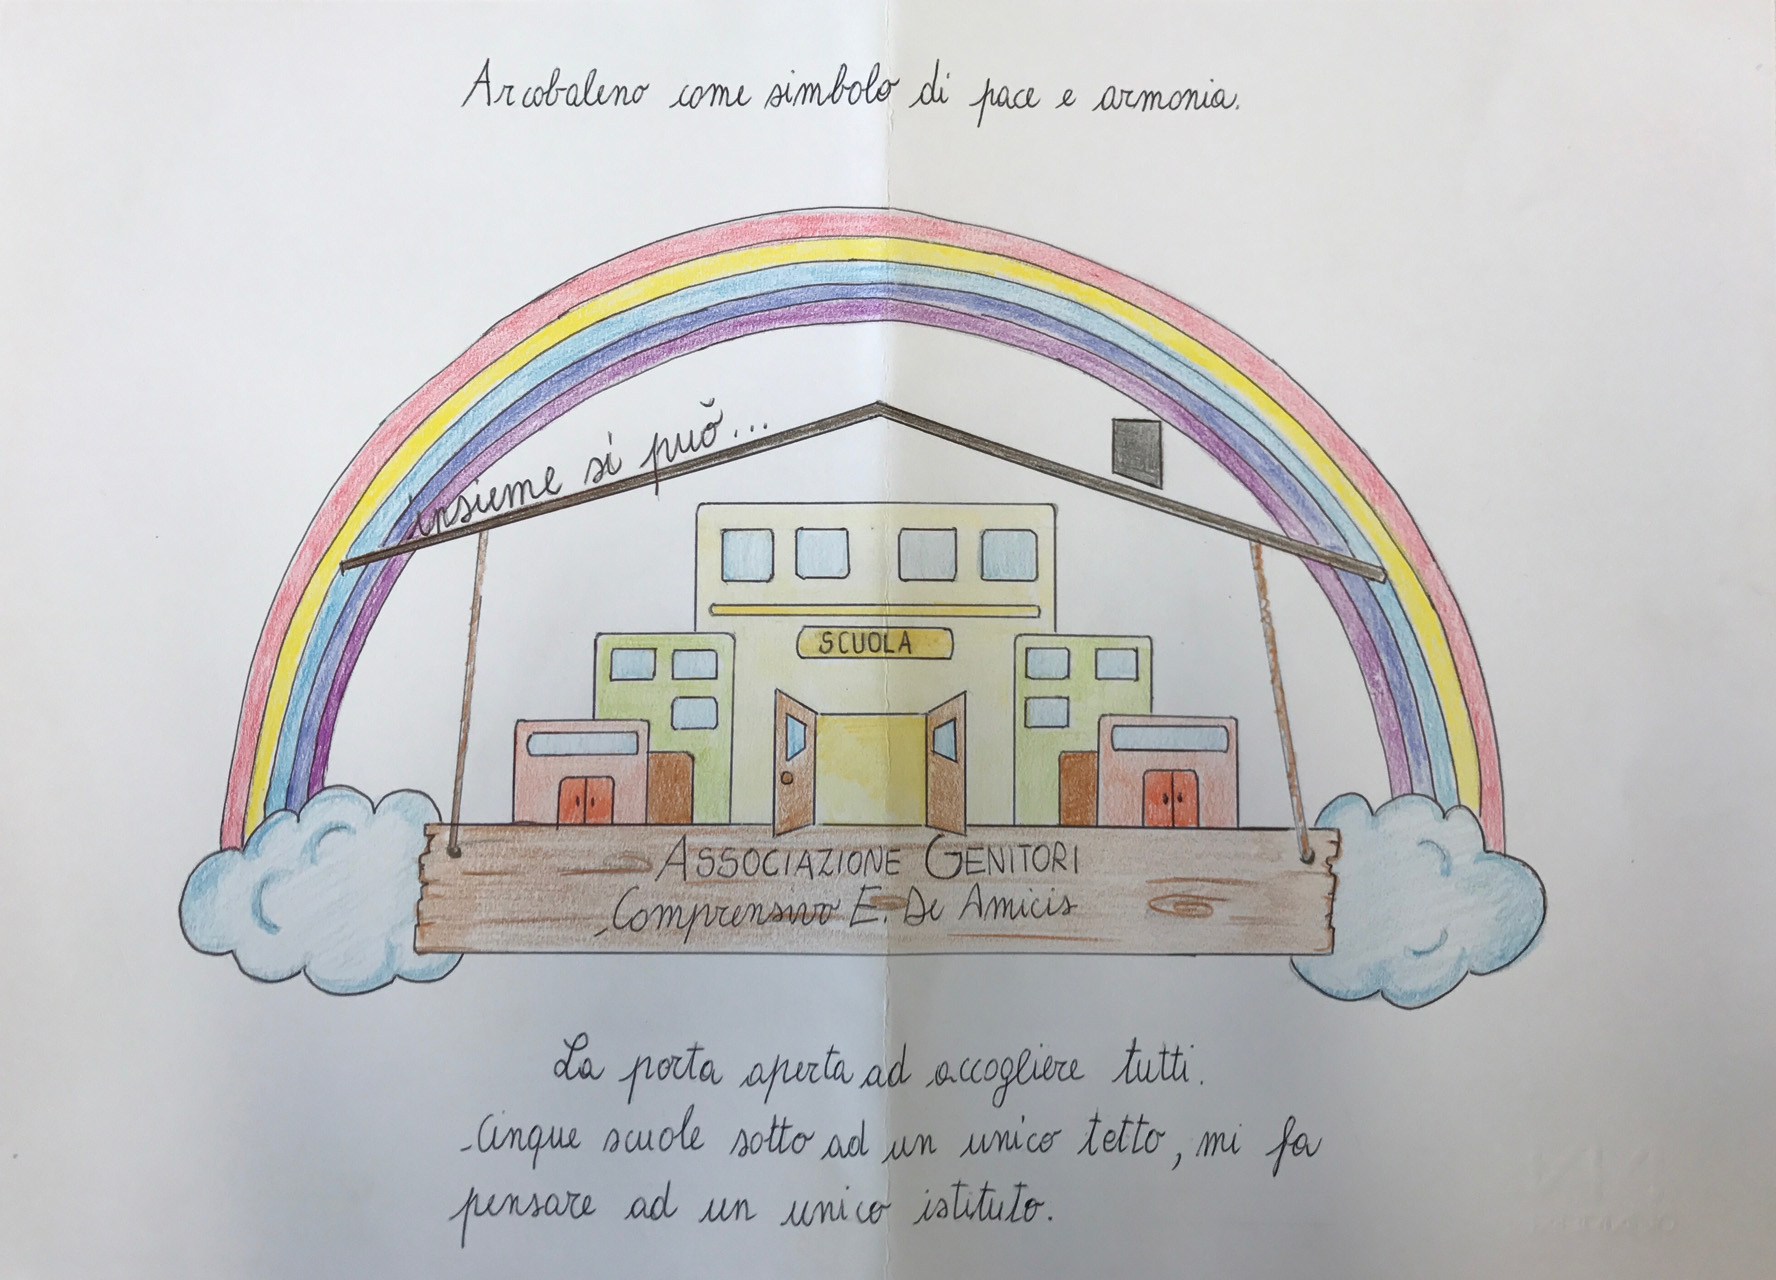 Arcobaleno come simbolo di pace e armonia.
insieme si può...
SCUOLA
ASSOCIAZIONE GENITORI
Comprensivo E. De Amicis
La porta aperta ad accogliere tutti.
Cinque scuole sotto ad un unico tetto, mi fa
pensare ad un unico istituto.